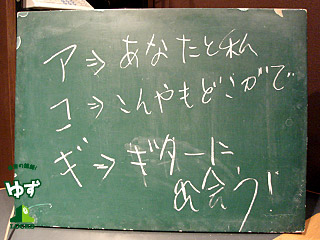 ア⇒あなたと私
コ⇒こんやもどこかで
ギ⇒ギターに
出会う!
ゆず